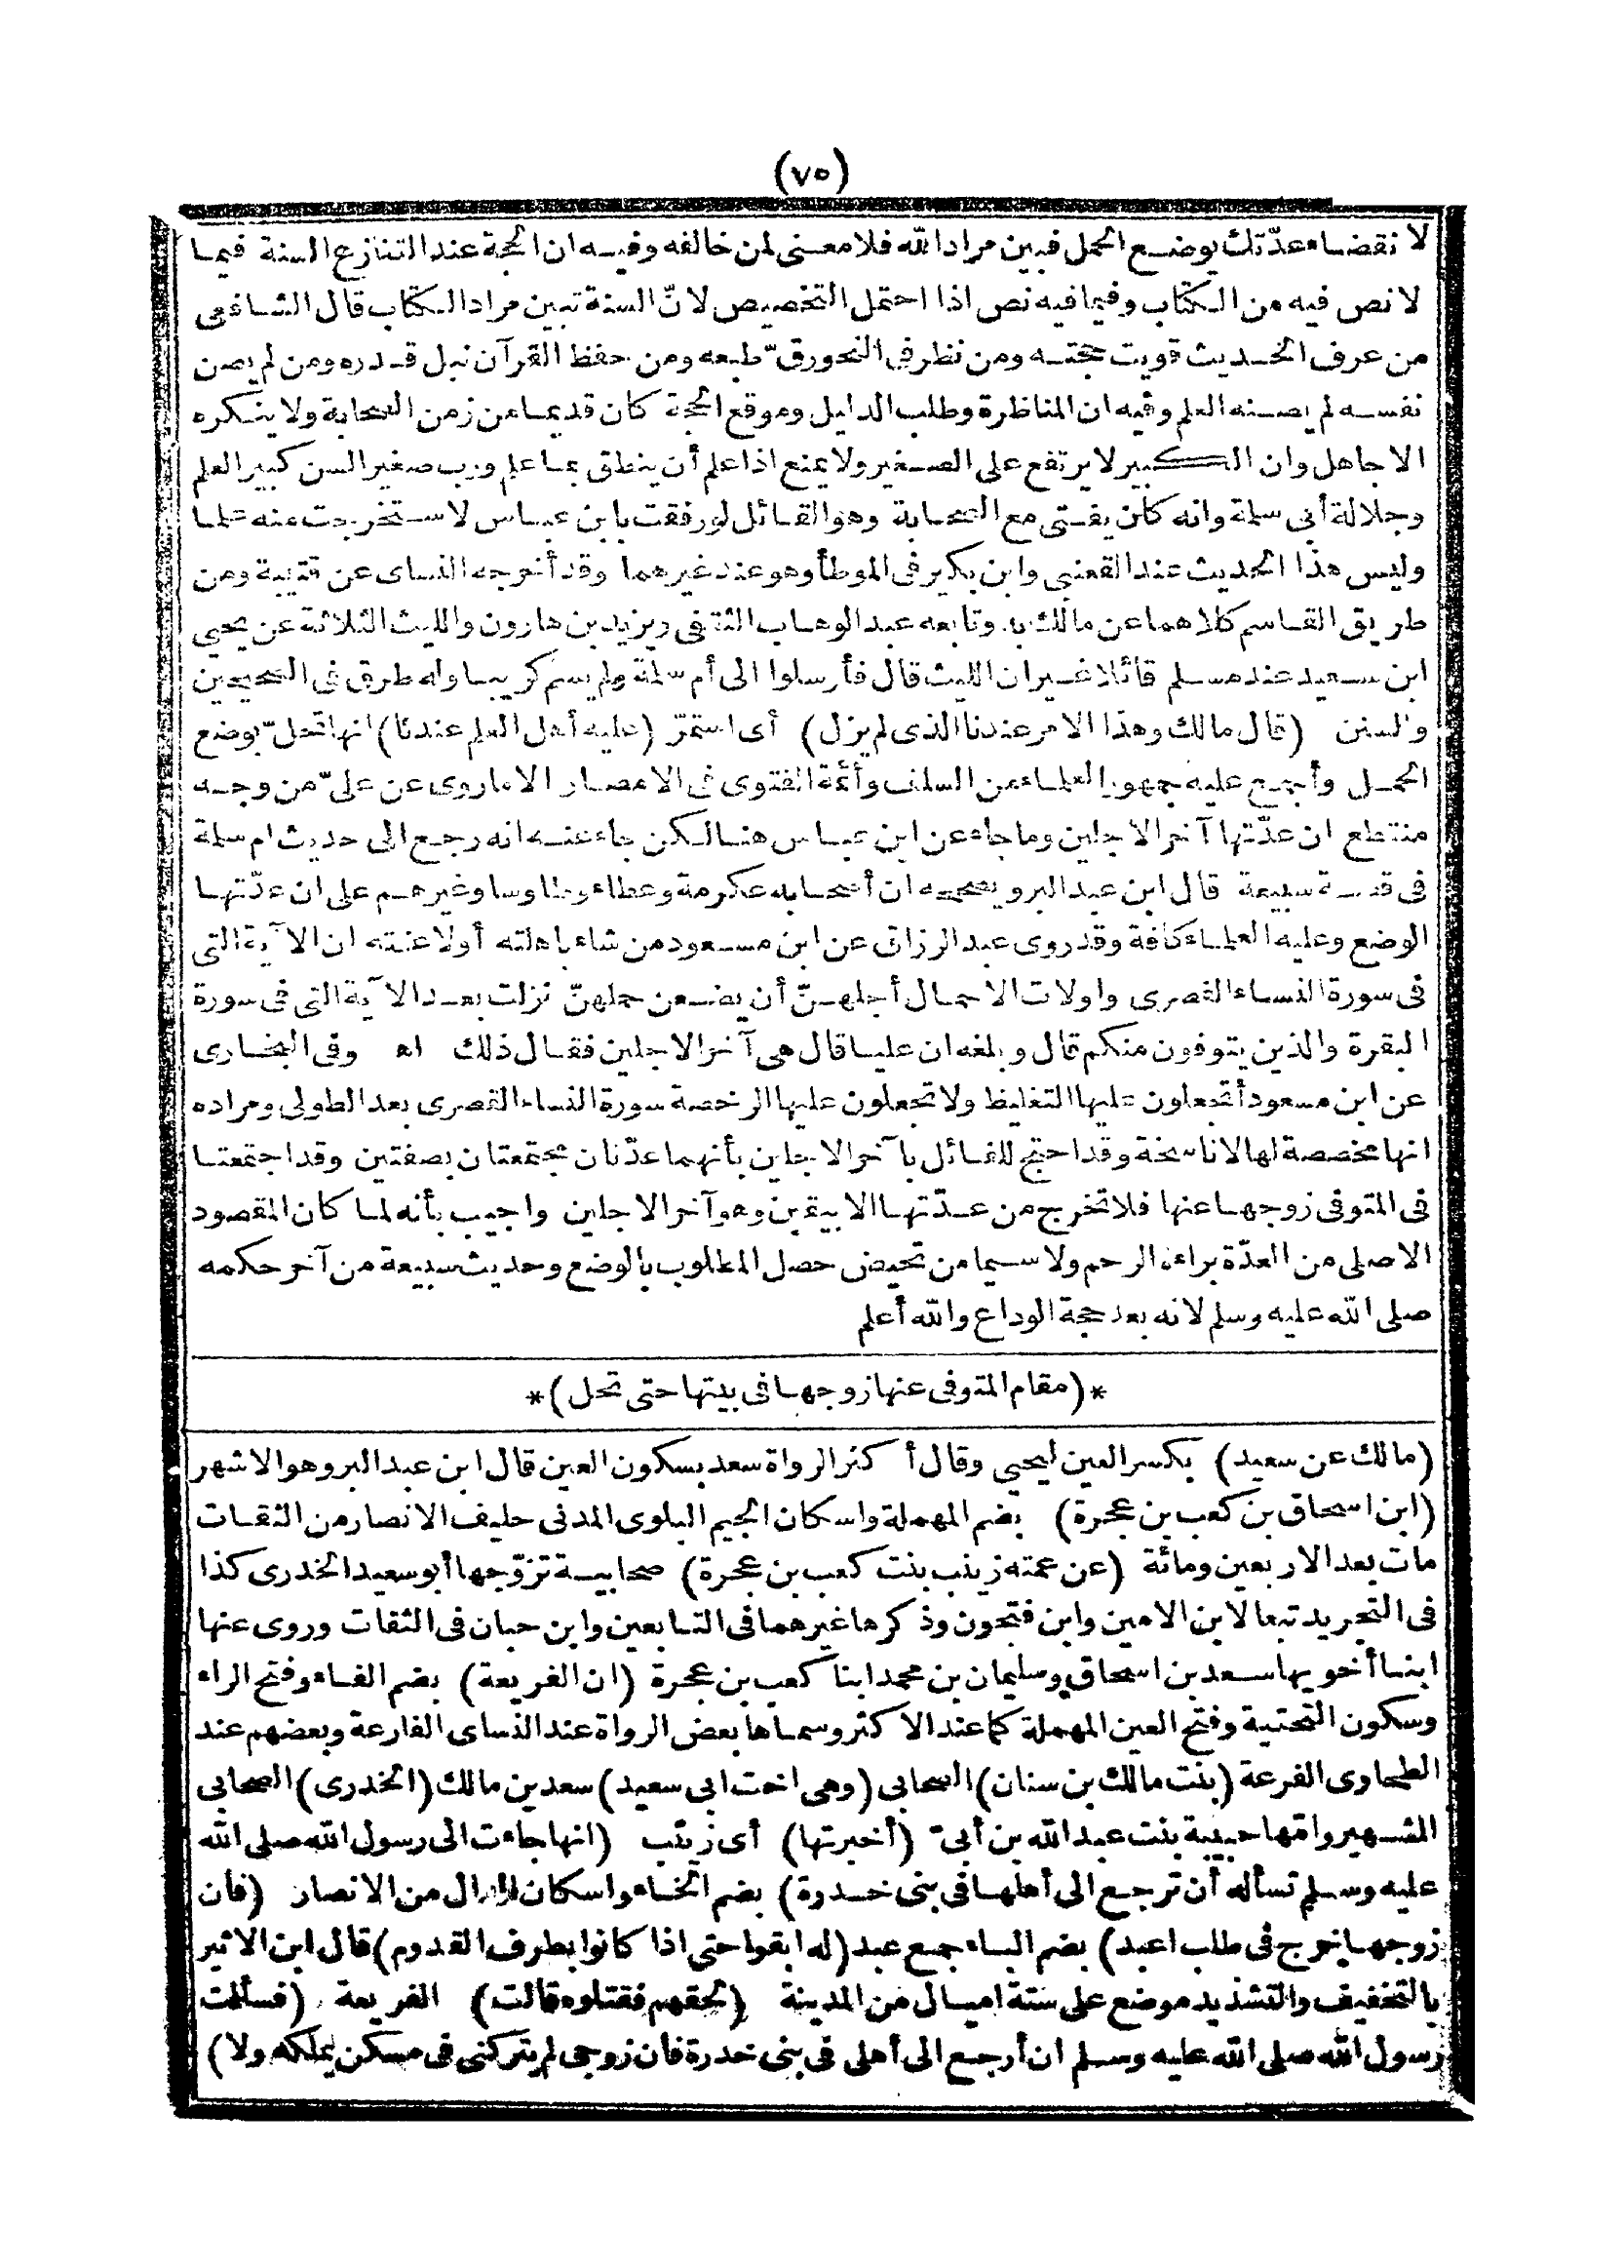 (٧٥)
لانقضاء عدّتك بوضع الحمل فبين مراد الله فلا معنى لمن خالفه وفيه ان الحجة عند التنازع السنة فيما
لا نص فيه من الكتاب وفيما فيه نص اذا احتمل التخصيص لانّ السنة تبين مراد الكتاب قال الشافعى
من عرف الحديث قويت حجته ومن نظر فى النحو رقّ طبعه ومن حفظ القرآن نبل قدره ومن لم يصن
نفسه لم يصنه العلم وفيه ان المناظرة وطلب الدليل وموقع الحجة كان قديما من زمن الصحابة ولا ينكره
الا جاهل وان الكبير لا يرتفع على الصغير ولا يمنع اذا علم أن ينطق بما علم ورب صغير السن كبير العلم
وجلالة أبى سلمة وانه كان يفتى مع الصحابة وهو القائل لو رفقت بابن عباس لاستخرجت منه علما
وليس هذا الحديث عند القعنبى وابن بكير فى الموطأ وهو عند غيرهما وقد أخرجه النساى عن قتيبة ومن
طريق القاسم كلاهما عن مالك به وتابعه عبد الوهاب الثقفى ويزيد بن هارون والليث الثلاثة عن يحيى
ابن سعيد عند مسلم قائلا غير ان الليث قال فأرسلوا الى أم سلمة ولم يسم كريبا وله طرق فى الصحيحين
والسنن (قال مالك وهذا الامر عندنا الذى لم يزل) أى استمرّ (عليه أهل العلم عندنا) انها تحلّ بوضع
الحمل وأجمع عليه جمهور العلماء من السلف وأئمة الفتوى فى الامصار الا ماروى عن علىّ من وجه
منقطع ان عدّتها آخر الاجلين وما جاء عن ابن عباس هنا لكن جاء عنه انه رجع الى حديث ام سلمة
فى قصة سبيعة قال ابن عبد البر ويصححه ان أصحابه عكرمة وعطاء وطاوسا وغيرهم على ان عدّتها
الوضع وعليه العلماء كافة وقد روى عبد الرزاق عن ابن مسعود من شاء باهلته أو لاعنته ان الآية التى
فى سورة النساء القصرى واولات الاحمال أجلهنّ أن يضعن حملهنّ نزلت بعد الآية التى فى سورة
البقرة والذين يتوفون منكم قال وبلغه ان عليا قال هى آخر الاجلين فقال ذلك اه وفى البخارى
عن ابن مسعود أتجعلون عليها التغليظ ولا تجعلون عليها الرخصة سورة النساء القصرى بعد الطولى ومراده
انها مخصصة لها لا ناسخة وقد احتج للقائل بآخر الاجلين بأنهما عدّتان مجتمعتان بصفتين وقد اجتمعتا
فى المتوفى زوجها عنها فلا تخرج من عدّتها الا بيقين وهو آخر الاجلين واجيب بأنه لما كان المقصود
الاصلى من العدّة براءة الرحم ولاسيما من تحيض حصل المطلوب بالوضع وحديث سبيعة من آخر حكمه
صلى الله عليه وسلم لانه بعد حجة الوداع والله أعلم
*(مقام المتوفى عنها زوجها فى بيتها حتى تحل)*
(مالك عن سعيد) بكسر العين ليحيى وقال أكثر الرواة سعد بسكون العين قال ابن عبد البر وهو الاشهر
(ابن اسحاق بن كعب بن عجرة) بضم المهملة واسكان الجيم البلوى المدنى حليف الانصار من الثقات
مات بعد الاربعين ومائة (عن عمته زينب بنت كعب بن عجرة) صحابية تزوّجها أبو سعيد الخدرى كذا
فى التجريد تبعا لابن الامين وابن فتحون وذكرها غيرهما فى التابعين وابن حبان فى الثقات وروى عنها
ابنا أخويها سعد بن اسحاق وسليمان بن محمد ابنا كعب بن عجرة (ان الفريعة) بضم الفاء وفتح الراء
وسكون التحتية وفتح العين المهملة كما عند الاكثر وسماها بعض الرواة عند النساى الفارعة وبعضهم عند
الطحاوى الفرعة (بنت مالك بن سنان) الصحابى (وهى اخت ابى سعيد) سعد بن مالك (الخدرى) الصحابى
الشهير وامّها حبيبة بنت عبد الله بن أبىّ (أخبرتها) أى زينب (انها جاءت الى رسول الله صلى الله
عليه وسلم تسأله أن ترجع الى أهلها فى بنى خدرة) بضم الخاء واسكان الدال من الانصار (فان
زوجها خرج فى طلب اعبد) بضم الباء جمع عبد (له ابقوا حتى اذا كانوا بطرف القدوم) قال ابن الاثير
بالتخفيف والتشديد موضع على ستة اميال من المدينة (لحقهم فقتلوه قالت) الفريعة (فسألت
رسول الله صلى الله عليه وسلم ان أرجع الى أهلى فى بنى خدرة فان زوجى لم يتركنى فى مسكن يملكه ولا)